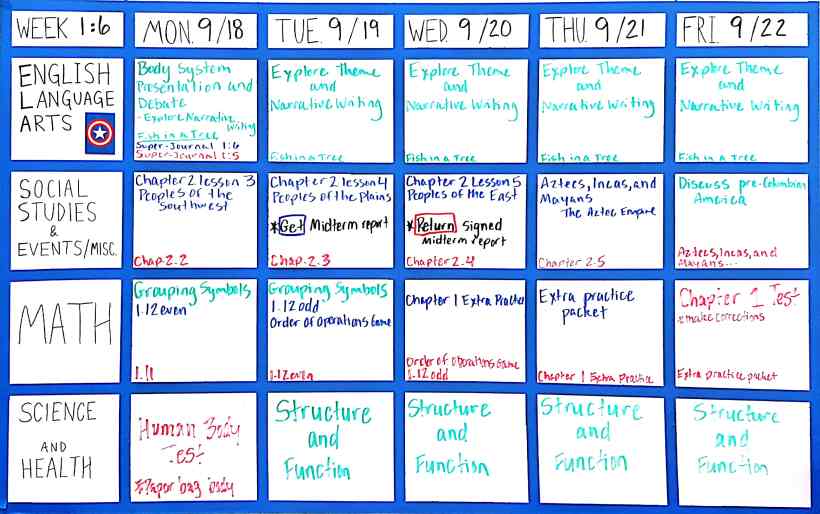 WEEK 1:6
MON. 9/18
TUE. 9/19
WED. 9/20
THU. 9/21
FRI. 9/22
ENGLISH
LANGUAGE
ARTS
Body System
Presentation and
Debate
- Explore Narrative
Writing
Fish in a Tree
Super-Journal 1:6
Super-Journal 1:5
Explore Theme
and
Narrative Writing
Fish in a Tree
Explore Theme
and
Narrative Writing
Fish in a Tree
Explore Theme
and
Narrative Writing
Fish in a Tree
Explore Theme
and
Narrative Writing
Fish in a Tree
SOCIAL
STUDIES
&
EVENTS/MISC.
Chapter 2 lesson 3
Peoples of the
Southwest
Chap 2.2
Chapter 2 lesson 4
Peoples of the Plains
*Get Midterm report
Chap. 2.3
Chapter 2 Lesson 5
Peoples of the East
*Return signed
midterm report
Chapter 2.4
Aztecs, Incas, and
Mayans
The Aztec Empire
Chapter 2.5
Discuss pre-Colombian
America
Aztecs, Incas, and
Mayans...
MATH
Grouping Symbols
1.12 even
1.11
Grouping Symbols
1.12 odd
Order of Operations Game
1.12 even
Chapter 1 Extra Practice
Order of operations Game
1.12 odd
Extra practice
packet
Chapter 1 Extra Practice
Chapter 1 Test
*make corrections
Extra practice packet
SCIENCE
AND
HEALTH
Human Body
Test
*Paper bag body
Structure
and
Function
Structure
and
Function
Structure
and
Function
Structure
and
Function